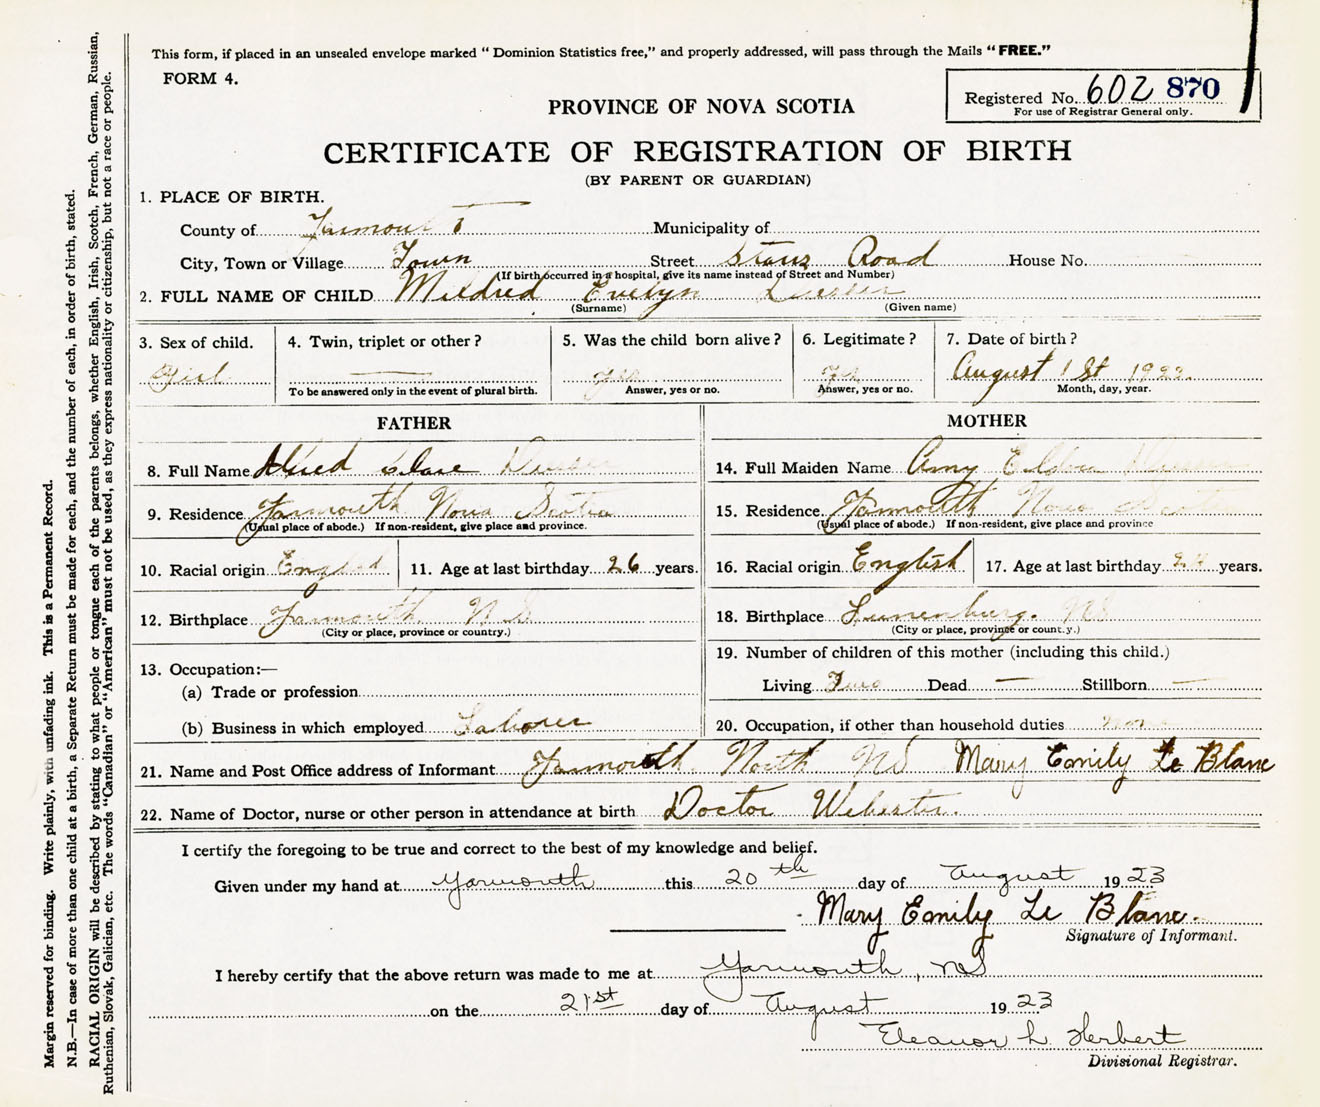 This form, if placed in an unsealed envelope marked " Dominion Statistics free," and properly addressed, will pass through the Mails " FREE."
FORM 4.
Registered No. 602 870
For use of Registrar General only.
PROVINCE OF NOVA SCOTIA
CERTIFICATE OF REGISTRATION OF BIRTH
(BY PARENT OR GUARDIAN)
1. PLACE OF BIRTH.
County of Municipality of
City, Town or Village Town Street Road House No.
(If birth occurred in a hospital, give its name instead of Street and Number)
2. FULL NAME OF CHILD Mildred Evelyn
(Surname) (Given name)
3. Sex of child. Girl
4. Twin, triplet or other ?
To be answered only in the event of plural birth.
5. Was the child born alive ? yes
Answer, yes or no.
6. Legitimate ? Yes
Answer, yes or no.
7. Date of birth ? August 1 St
Month, day, year.
FATHER
8. Full Name
9. Residence Yarmouth Nova Scotia
(Usual place of abode.) If non-resident, give place and province.
10. Racial origin English 11. Age at last birthday 26 years.
12. Birthplace Yarmouth N S
(City or place, province or country.)
13. Occupation:—
(a) Trade or profession
(b) Business in which employed Laborer
MOTHER
14. Full Maiden Name Amy
15. Residence Yarmouth Nova Scotia
(Usual place of abode.) If non-resident, give place and province
16. Racial origin English 17. Age at last birthday years.
18. Birthplace Lunenburg. NS
(City or place, province or county.)
19. Number of children of this mother (including this child.)
Living Two Dead — Stillborn —
20. Occupation, if other than household duties none
21. Name and Post Office address of Informant Yarmouth North NS Mary Emily Le Blanc
22. Name of Doctor, nurse or other person in attendance at birth Doctor Webster.
I certify the foregoing to be true and correct to the best of my knowledge and belief.
Given under my hand at Yarmouth this 20th day of August 1923
Mary Emily Le Blanc.
Signature of Informant.
I hereby certify that the above return was made to me at Yarmouth, NS
on the 21st day of August 1923
Eleanor L. Herbert
Divisional Registrar.
Margin reserved for binding. Write plainly, with unfading ink. This is a Permanent Record.
N.B.—In case of more than one child at a birth, a Separate Return must be made for each, and the number of each, in order of birth, stated.
RACIAL ORIGIN will be described by stating to what people or tongue each of the parents belongs, whether English, Irish, Scotch, French, German, Russian,
Ruthenian, Slovak, Galician, etc. The words "Canadian" or "American" must not be used, as they express nationality or citizenship, but not a race or people.